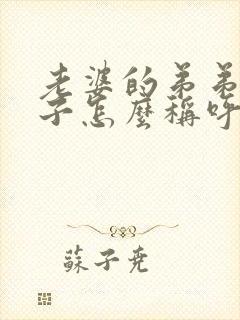 老婆的弟弟
子怎麼稱呼
蘇子尭